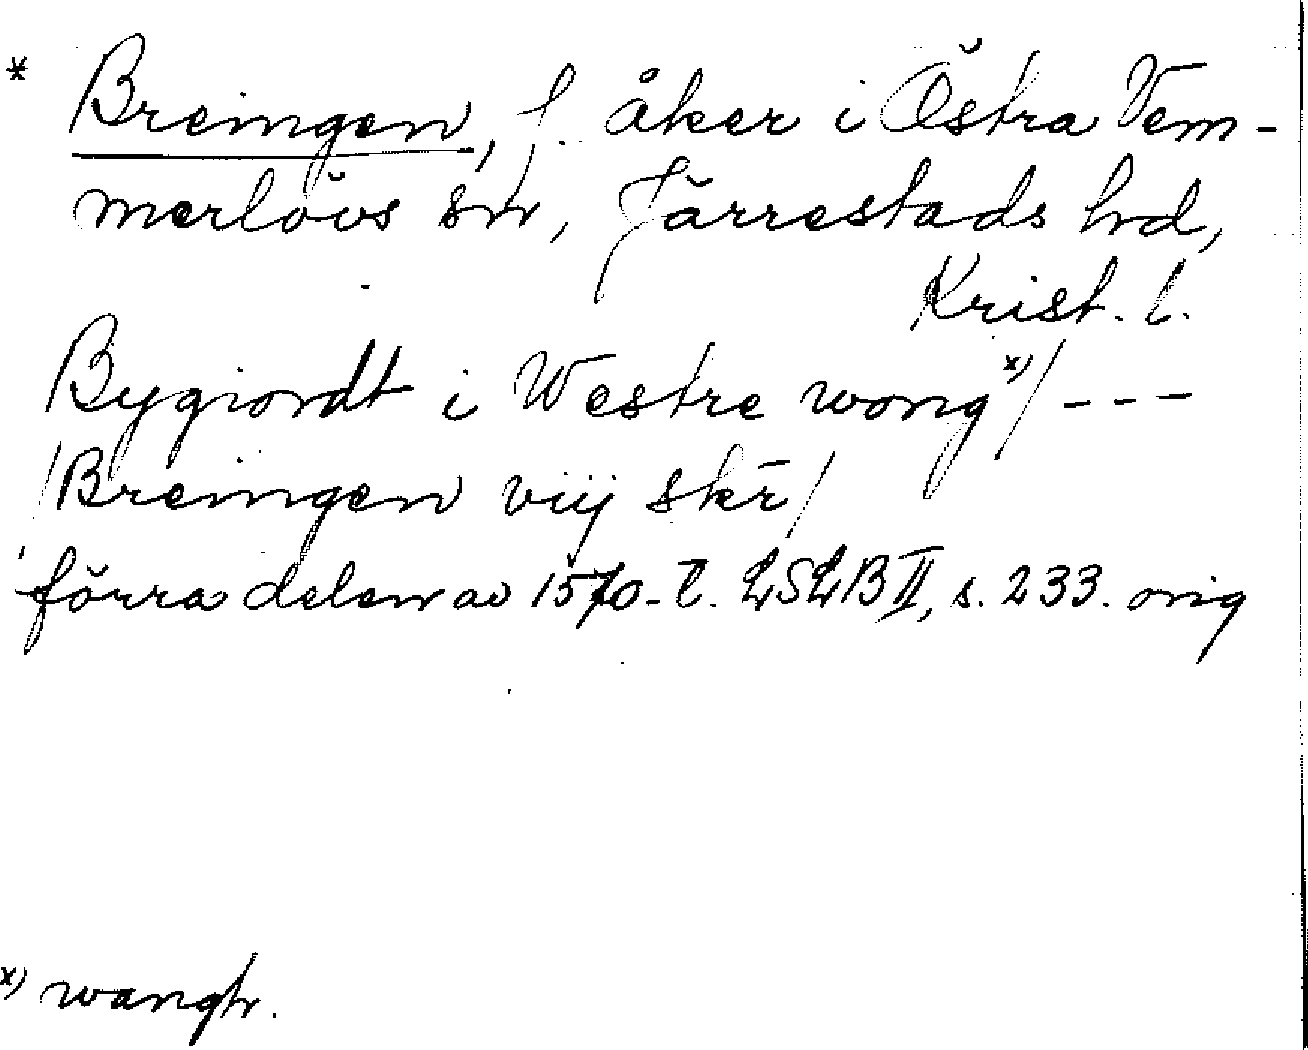 * Breingen, f. åker i Östra Vem-
merlövs sn, Järrestads hd,
Krist. l.
Bygiordt i Westre wong x)/ - - -
/Breingen viij skr̄/
förra delen av 1570-t. LSLB II, s. 233. orig
x) wangh.